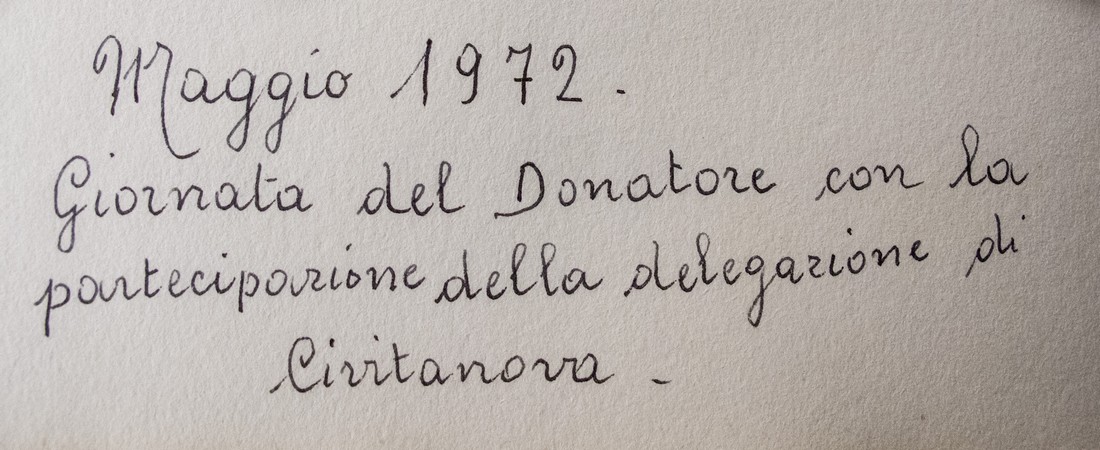 Maggio 1972.
Giornata del Donatore con la
partecipazione della delegazione di
Civitanova -